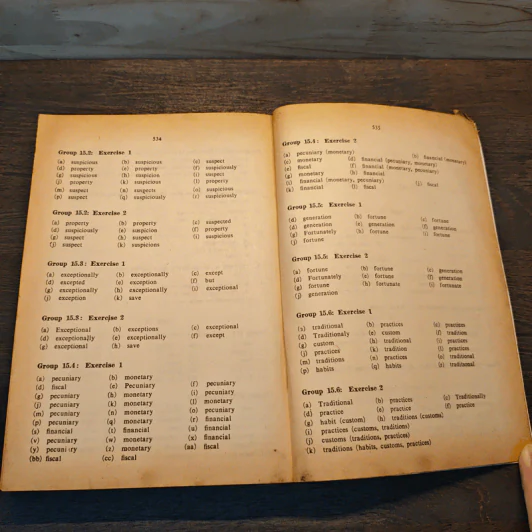 334
Group 15.2: Exercise 1
(a) suspicious (b) suspicious (c) suspect
(d) property (e) property (f) suspiciously
(g) suspicious (h) suspect (i) suspicious
(j) property (k) suspicious (l) property
(m) suspect (n) suspect (o) suspicious
(p) suspect (q) suspiciously (r) suspiciously
Group 15.2: Exercise 2
(a) property (b) property (c) suspected
(d) suspiciously (e) suspicion (f) property
(g) suspect (h) suspect (i) suspicious
(j) suspect (k) suspicious
Group 15.3: Exercise 1
(a) exceptionally (b) exceptionally (c) except
(d) excepted (e) exception (f) but
(g) exceptionally (h) exceptionally (i) exceptional
(j) exception (k) save
Group 15.3: Exercise 2
(a) Exceptional (b) exceptious (c) exceptional
(d) exceptionally (e) exceptionally (f) except
(g) exceptional (h) save
Group 15.4: Exercise 1
(a) pecuniary (b) monetary
(d) fiscal (e) Pecuniary (f) pecuniary
(g) pecuniary (h) monetary (i) pecuniary
(j) pecuniary (k) monetary (l) monetary
(m) pecuniary (n) monetary (o) pecuniary
(p) pecuniary (q) monetary (r) financial
(s) financial (t) financial (u) financial
(v) pecuniary (w) monetary (x) financial
(y) pecuniary (z) monetary (aa) fiscal
(bb) fiscal (cc) fiscal
Group 15.4: Exercise 2
(a) pecuniary (monetary) (b) financial (monetary)
(c) monetary (d) financial (pecuniary, monetary)
(e) fiscal (f) financial (monetary, pecuniary)
(g) monetary (h) financial
(i) financial (monetary, pecuniary)
(k) financial (l) fiscal (j) fiscal
Group 15.5: Exercise 1
(a) generation (b) fortune (c) fortune
(d) generation (e) generation (f) generation
(g) Fortunately (h) fortune (i) fortune
(j) fortune
Group 15.5: Exercise 2
(a) fortune (b) fortune (c) generation
(d) Fortunately (e) fortune (f) generation
(g) fortune (h) fortunate (i) fortunate
(j) generation
Group 15.6: Exercise 1
traditional (b) practices practices
(d) traditional (e) custom (f) tradition
(g) custom (h) traditional (i) practices
(j) practices (k) tradition (l) practices
(m) tradition (n) practices (o) traditional
(p) habits (q) habits traditional
Group 15.6: Exercise 2
(a) Traditional (b) practices (c) Traditionally
(d) practice (e) practice (f) practice
(g) habit (custom) (h) traditions (customs)
(i) practices (customs, traditions)
(j) customs (traditions, practices)
(k) traditions (habits, customs, practices)